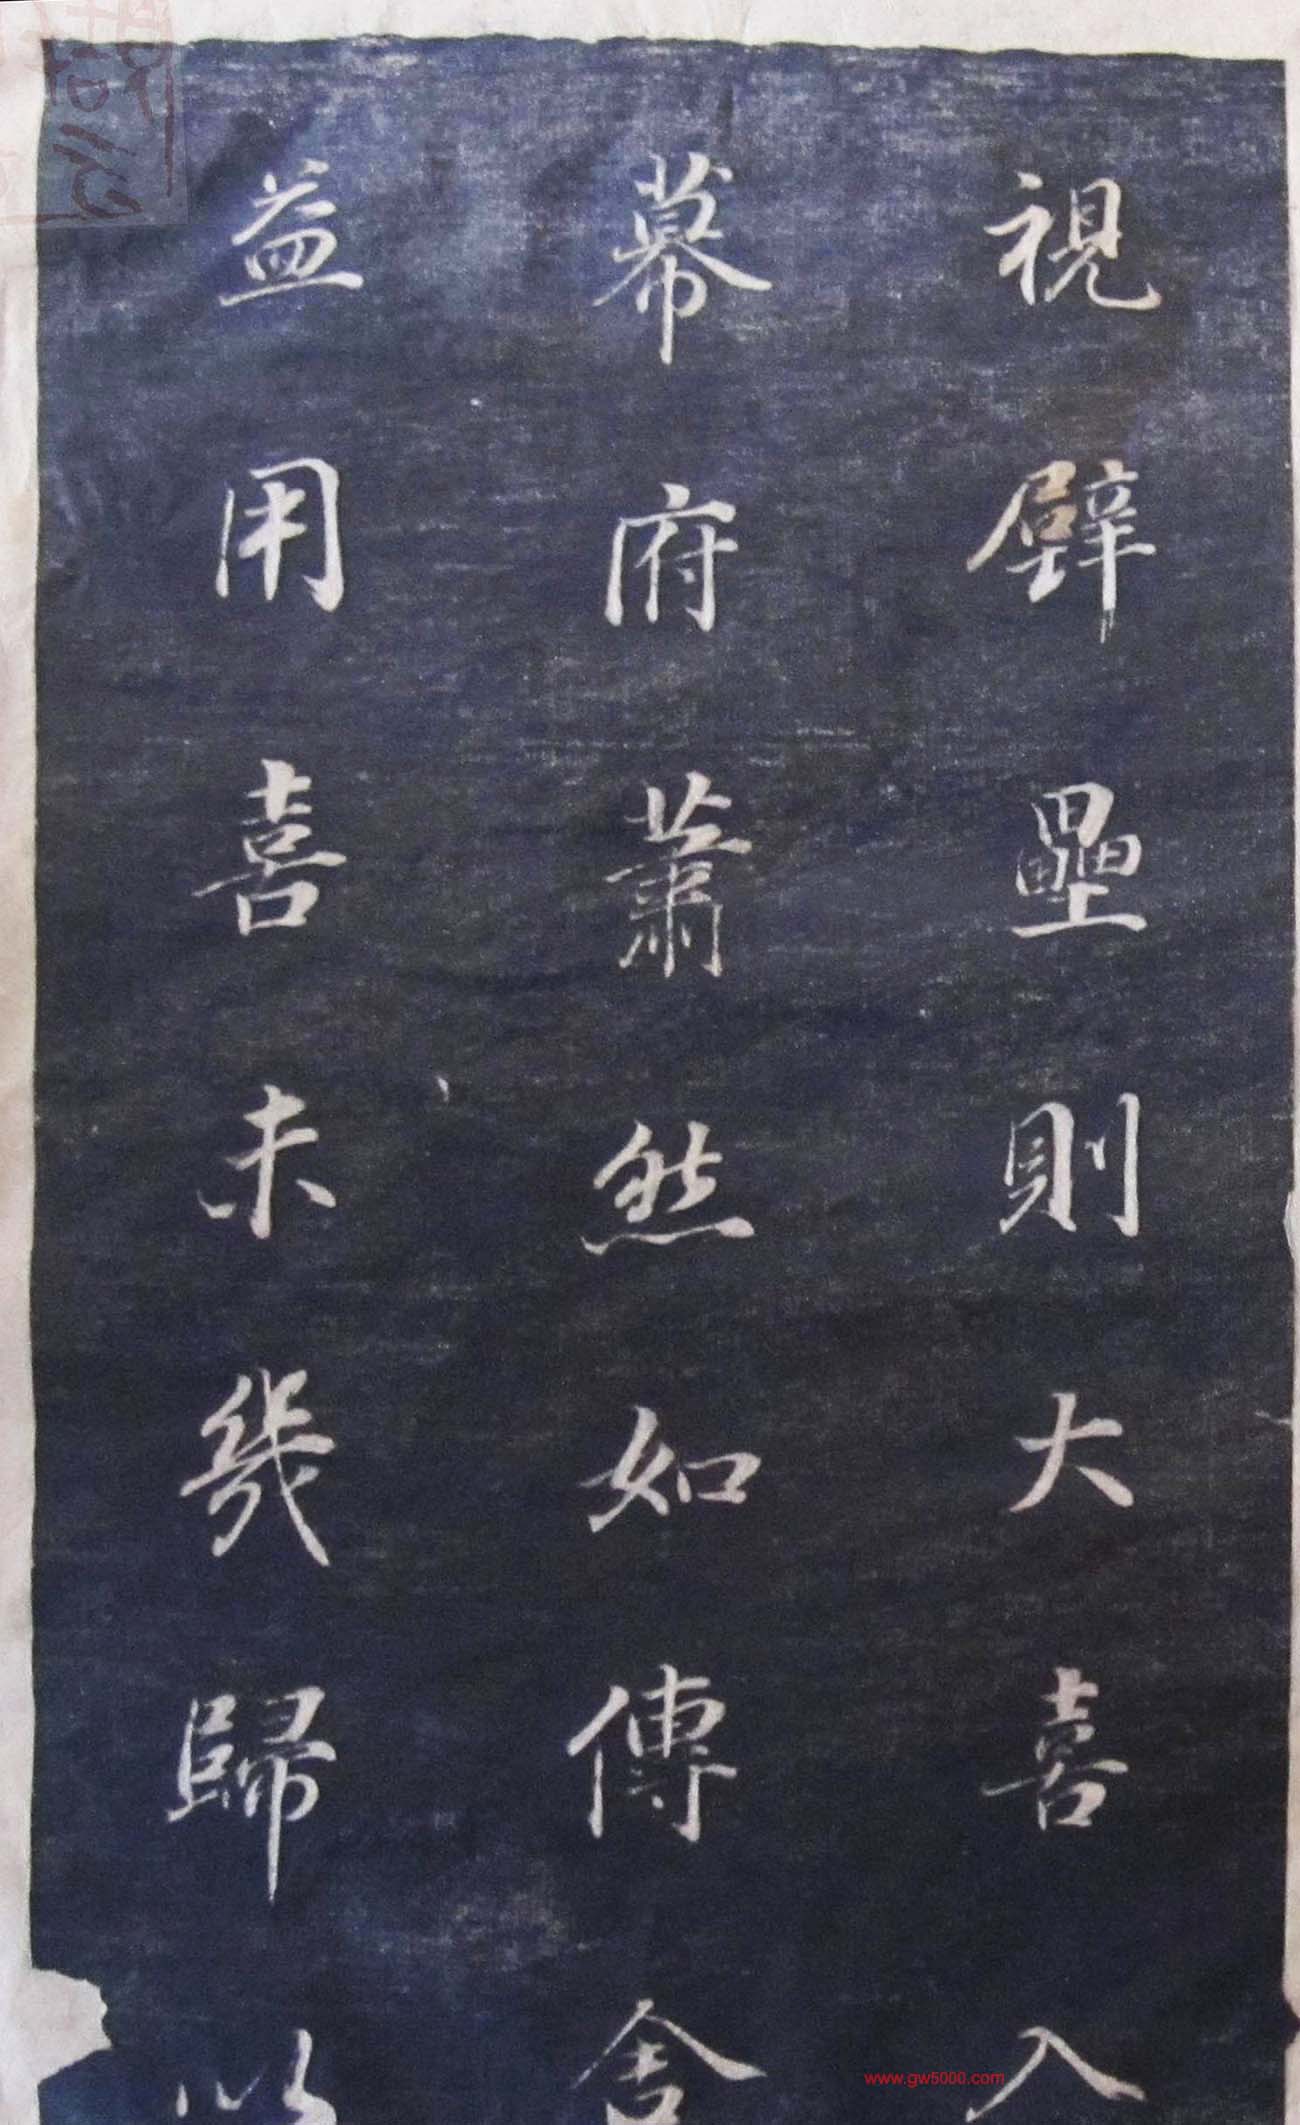 視壁壘則大喜入
幕府蕭然如傳舍
益用喜未幾歸以
www.gw5000.com